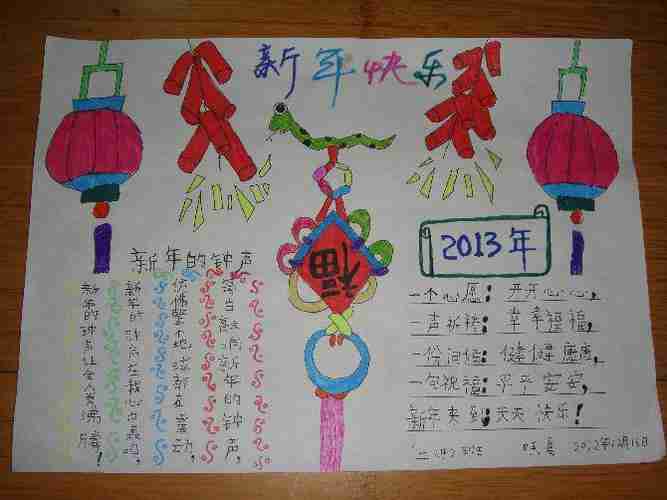 新年快乐
福
2013年
新年的钟声
每当敲响新年的钟声,
仿佛整个地球都在震动,
新年的钟声在我心中轰鸣,
新年的钟声让全人类沸腾!
一个心愿:开开心心,
一声祈祷:幸幸福福,
一份问候:健健康康,
一句祝福:平平安安,
新年来到:天天快乐!
2012年12月16日